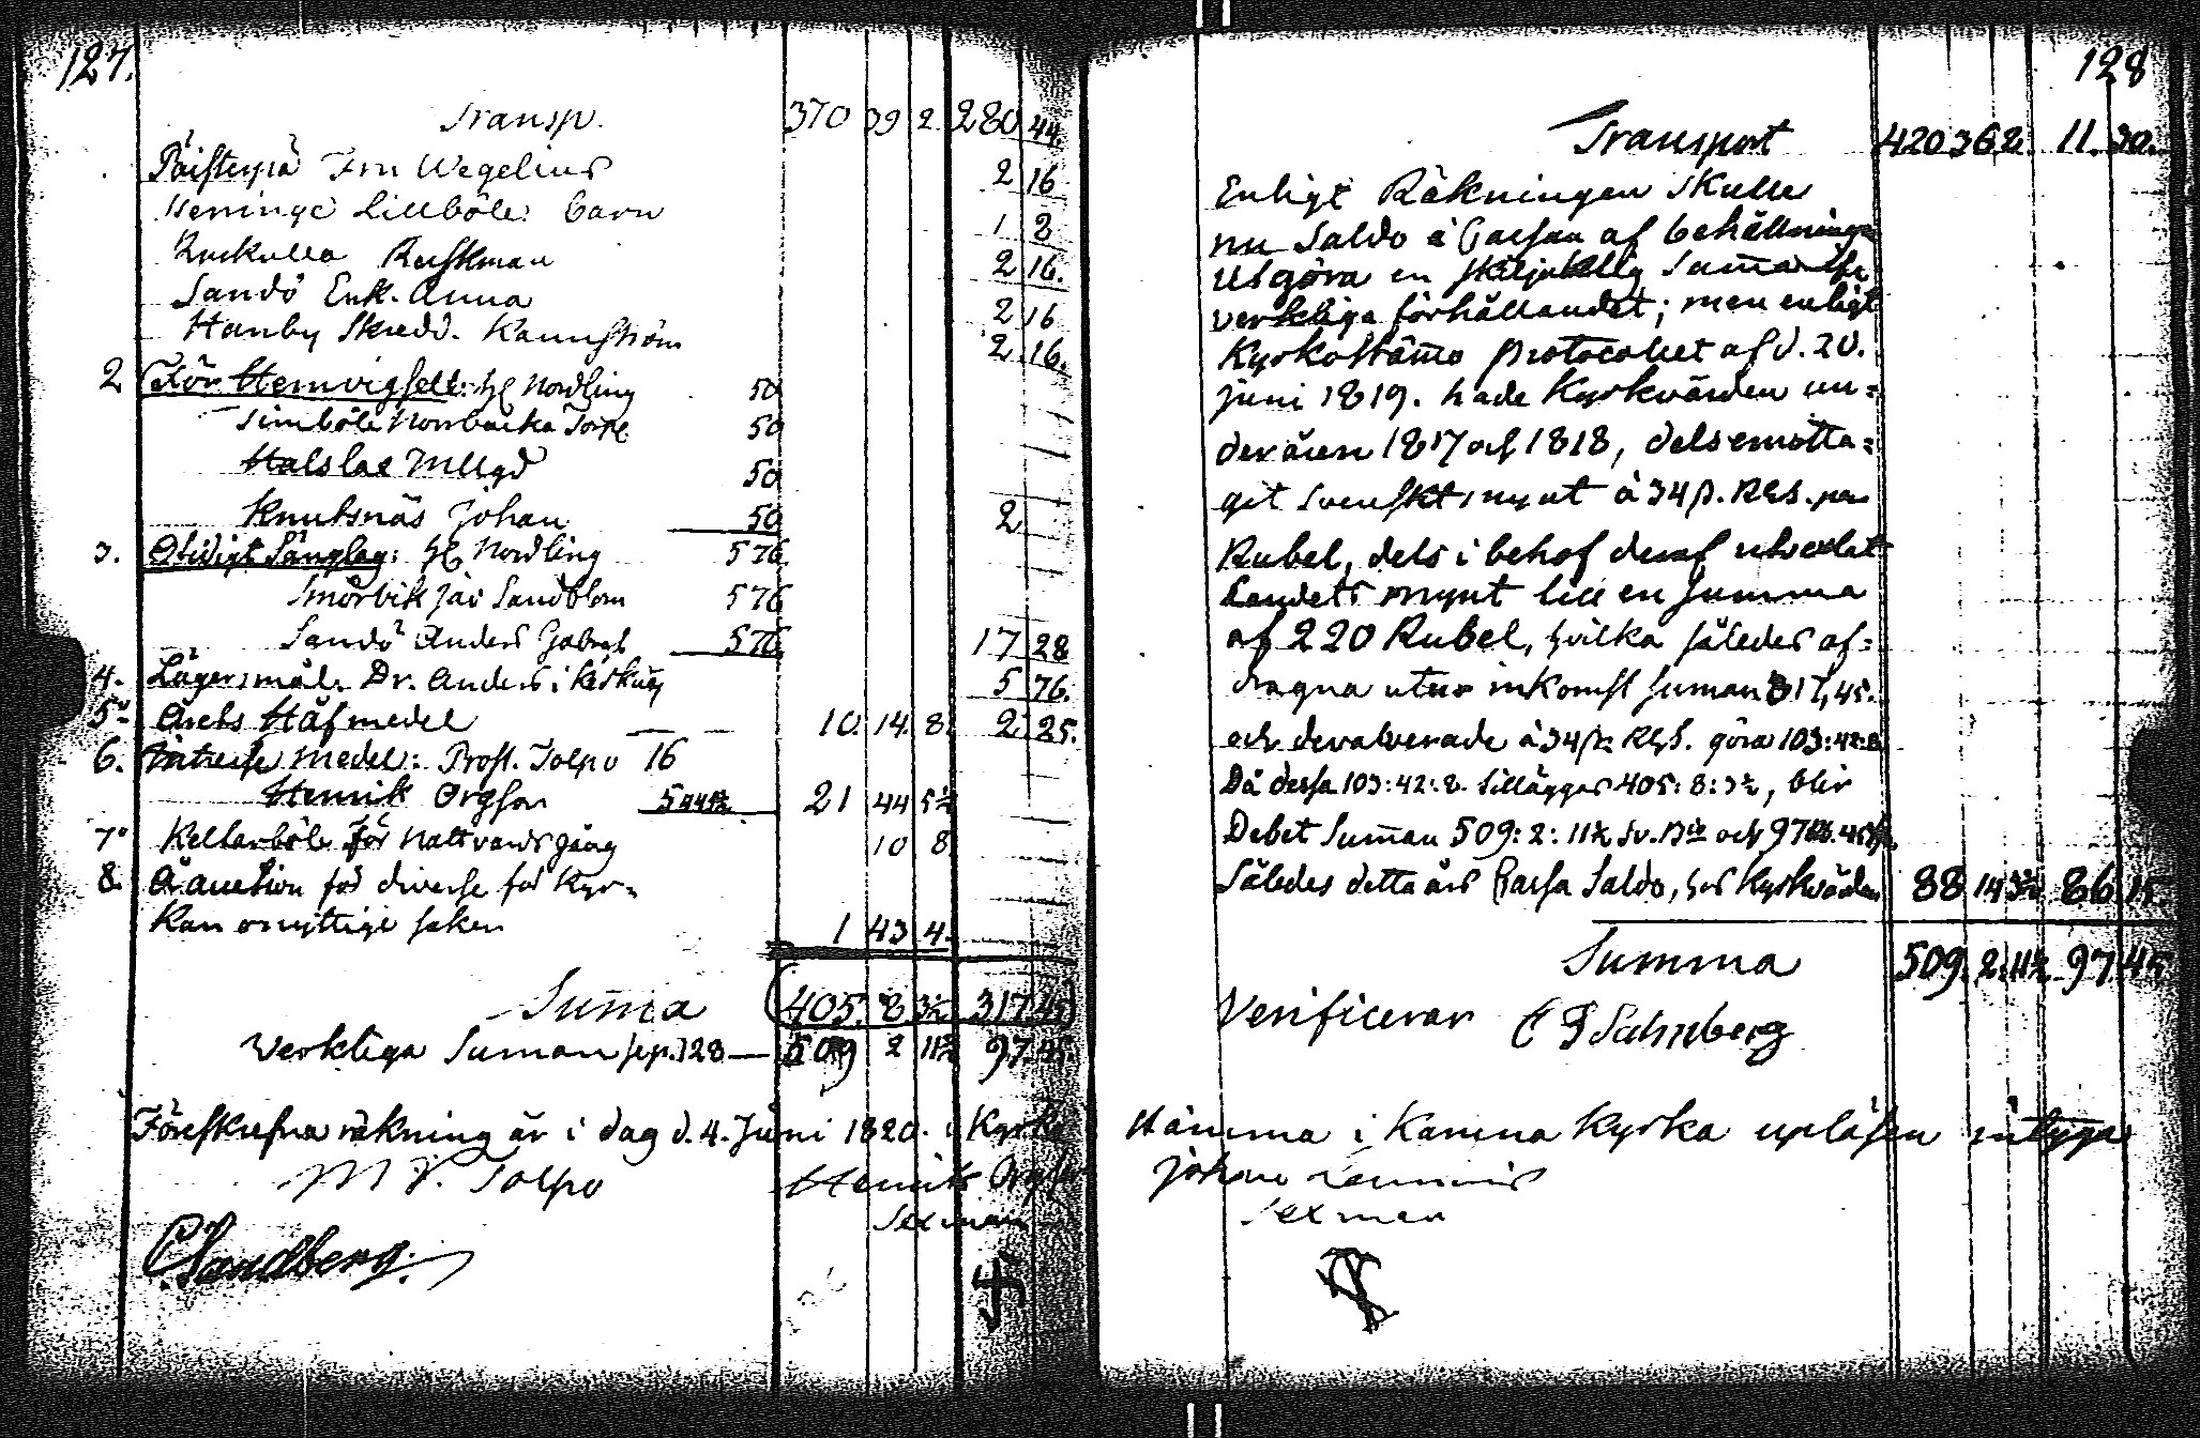 127.
Transp. 370 39 2 280 44.
Päisterpä Fru Wegelius 2 16
Heninge Lillböle: barn 1 8
Ruskulla Ruskman 2 16.
Sandö Enk. Anna 2 16
Hanby Skredd. Kannström 2 16.
2 För Hemvigsell: H Nordling 50
Simböle Norrbacka Torp. 50
Halslax Mllgd 50
Knutsnäs Johan 50 2
3. Otidigt Sänglag: H Nordling 5 76
Smörvik Sandblom 5 76
Sandö Anders Gabriel 5 76 17 28
4. Lägersmål. Dr. Anders i 5 76.
5. Årets Håfmedel 10. 14. 8. 2. 25.
6. Intresse medel: Prost. Tolpo 16
Henrik Orgson 5 21 44 5½
7° Kellarböle för Nattvards gång 10 8
8. Å auction för diverse för Kyr-
kan onyttige saker 1 43 4.
Suma (405. 8 3½ 317.45)
Verkliga Suman se p. 128 — 509 2 11½ 97.45.
Föreskrefna räkning är i dag d. 4. Juni 1820. i Kyrko
M V. Tolpo Henrik Orgson
Sexman
C Sandberg.
128
Transport 420 36 2. 11. 30.
Enligt Räkningen skulle
nu Saldo à Cassan af behållningen
utgöra en skiljaktlig Suma
verkliga förhållandet; men enligt
Kyrkostämo protocollet af d. 20.
juni 1819. hade Kyrkvärden un-
der åren 1817 och 1818, dels emotta-
git Svenskt mynt à 34 β. RGS. pr
Rubel, dels i behof deraf utvexlat
Landets mynt till en Summa
af 220 Rubel, hvilka således af-
dragna utur inkomst suman 317,45.
och devalverade à 34 β. RGS. göra 103:42:8
Då dessa 103:42:8. tillägges 405:8:3½, blir
Debet Suman 509:2:11½ Sv. B:co och 97 Rb. 45
Således detta års Cassa Saldo, hos Kyrkvärden 88 14 3½ 86 15.
Summa 509. 2. 11½ 97.45
Verificerar C F Sahnberg
Stämma i Karuna Kyrka upläsen intyga
Johan
Sexman